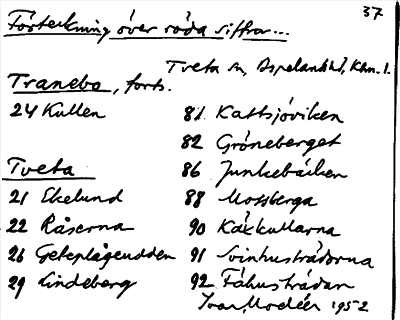 37
Förteckning över röda siffror...
Tveta sn, Aspelands hd, Khn. l.
Tranebo, forts.
24 Kullen
Tveta
21 Ekelund
22 Råserna
26 Geteplågeudden
29 Lindeberg
81 Kattsjöviken
82 Gröneberget
86 Junkebäcken
88 Mossberga
90 Käxkullarna
91 Svinhusträdorna
92 Fähusträdan
Ivar Modéer 1952